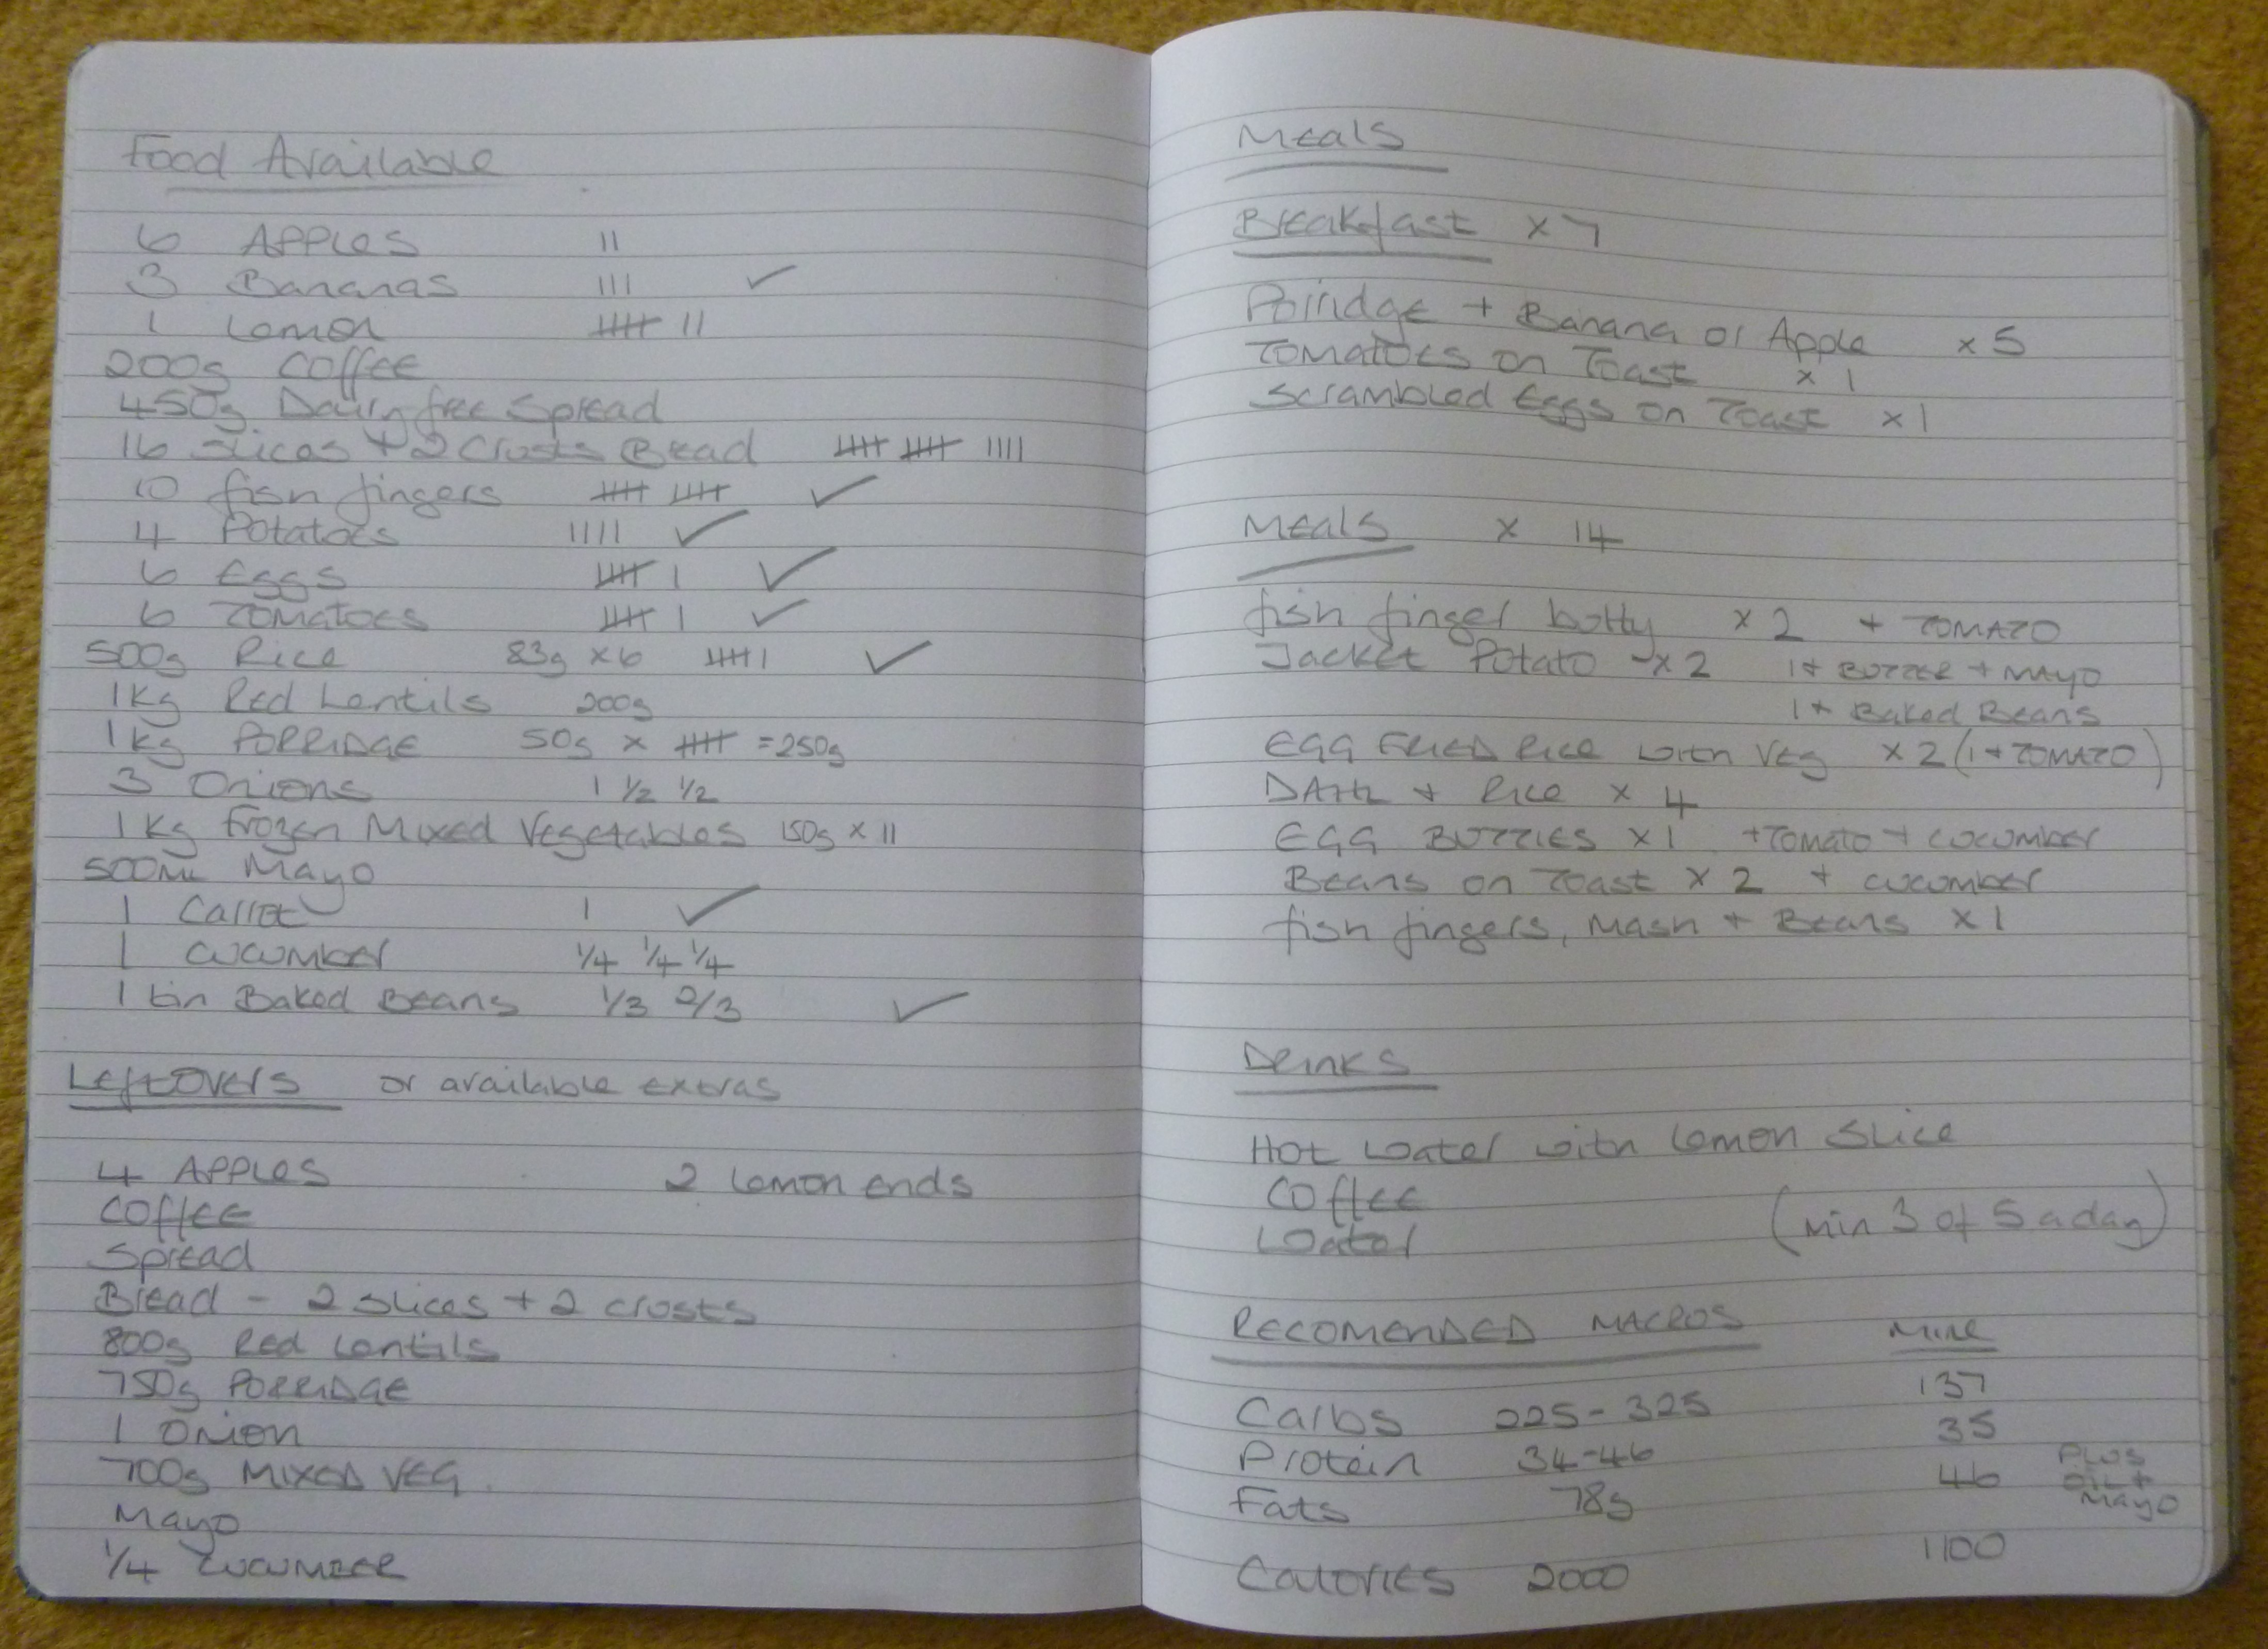 Food Available
6 APPLES II
3 Bananas III ✓
1 Lemon IIII II
200g Coffee
450g Dairy free Spread
16 Slices + 2 Crusts Bread IIII IIII IIII
10 fish fingers IIII IIII ✓
4 Potatoes IIII ✓
6 Eggs IIII I ✓
6 Tomatoes IIII I ✓
500g Rice 83g x 6 IIII I ✓
1Kg Red Lentils 200g
1kg PORRIDGE 50g x IIII = 250g
3 Onions 1 1/2 1/2
1Kg Frozen Mixed Vegetables 150g x II
500ML Mayo
1 Carrot 1 ✓
1 Cucumber 1/4 1/4 1/4
1 tin Baked Beans 1/3 2/3 ✓
Leftovers or available extras
4 APPLES 2 lemon ends
Coffee
Spread
Bread - 2 slices + 2 crusts
800g Red Lentils
750g PORRIDGE
1 Onion
700g MIXED VEG.
Mayo
1/4 CUCUMBER
Meals
Breakfast x 7
Porridge + Banana or Apple x 5
Tomatoes on Toast x 1
Scrambled Eggs on Toast x 1
Meals x 14
fish finger butty x 2 + TOMATO
Jacket Potato - x 2 1 + BUTTER + MAYO
1 + Baked Beans
EGG FRIED Rice with Veg x 2 (1 + TOMATO)
DAHL + Rice x 4
EGG BUTTIES x 1 + Tomato + cucumber
Beans on Toast x 2 + cucumber
fish fingers, Mash + Beans x 1
Drinks
Hot water with lemon slice
Coffee
Water (Min 3 of 5 a day)
RECOMENDED MACROS Mine
Carbs 225 - 325 137
Protein 34-46 35
Fats 78g 46 PLUS OIL + MAYO
Calories 2000 1100